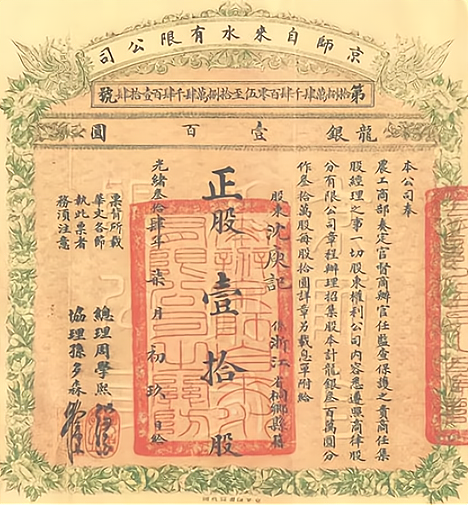 京師自來水有限公司
第拾捌萬肆千肆百零伍至拾捌萬肆千肆百壹拾肆號
龍銀壹百圓
本公司奏
農工商部奏定官督商辦官任監查保護之責商任集
股經理之事一切股東權利公司內容悉遵照商律股
分有限公司章程辦理招集股本計龍銀叄百萬圓分
作叄拾萬股每股拾圓詳章另載息單附給
股東沈庚記 係浙江省桐鄉縣籍
正股壹拾股
光緒叄拾肆年柒月初玖日給
票背所載
華文各節
執此票者
務須注意
總理周學熙
協理孫多森